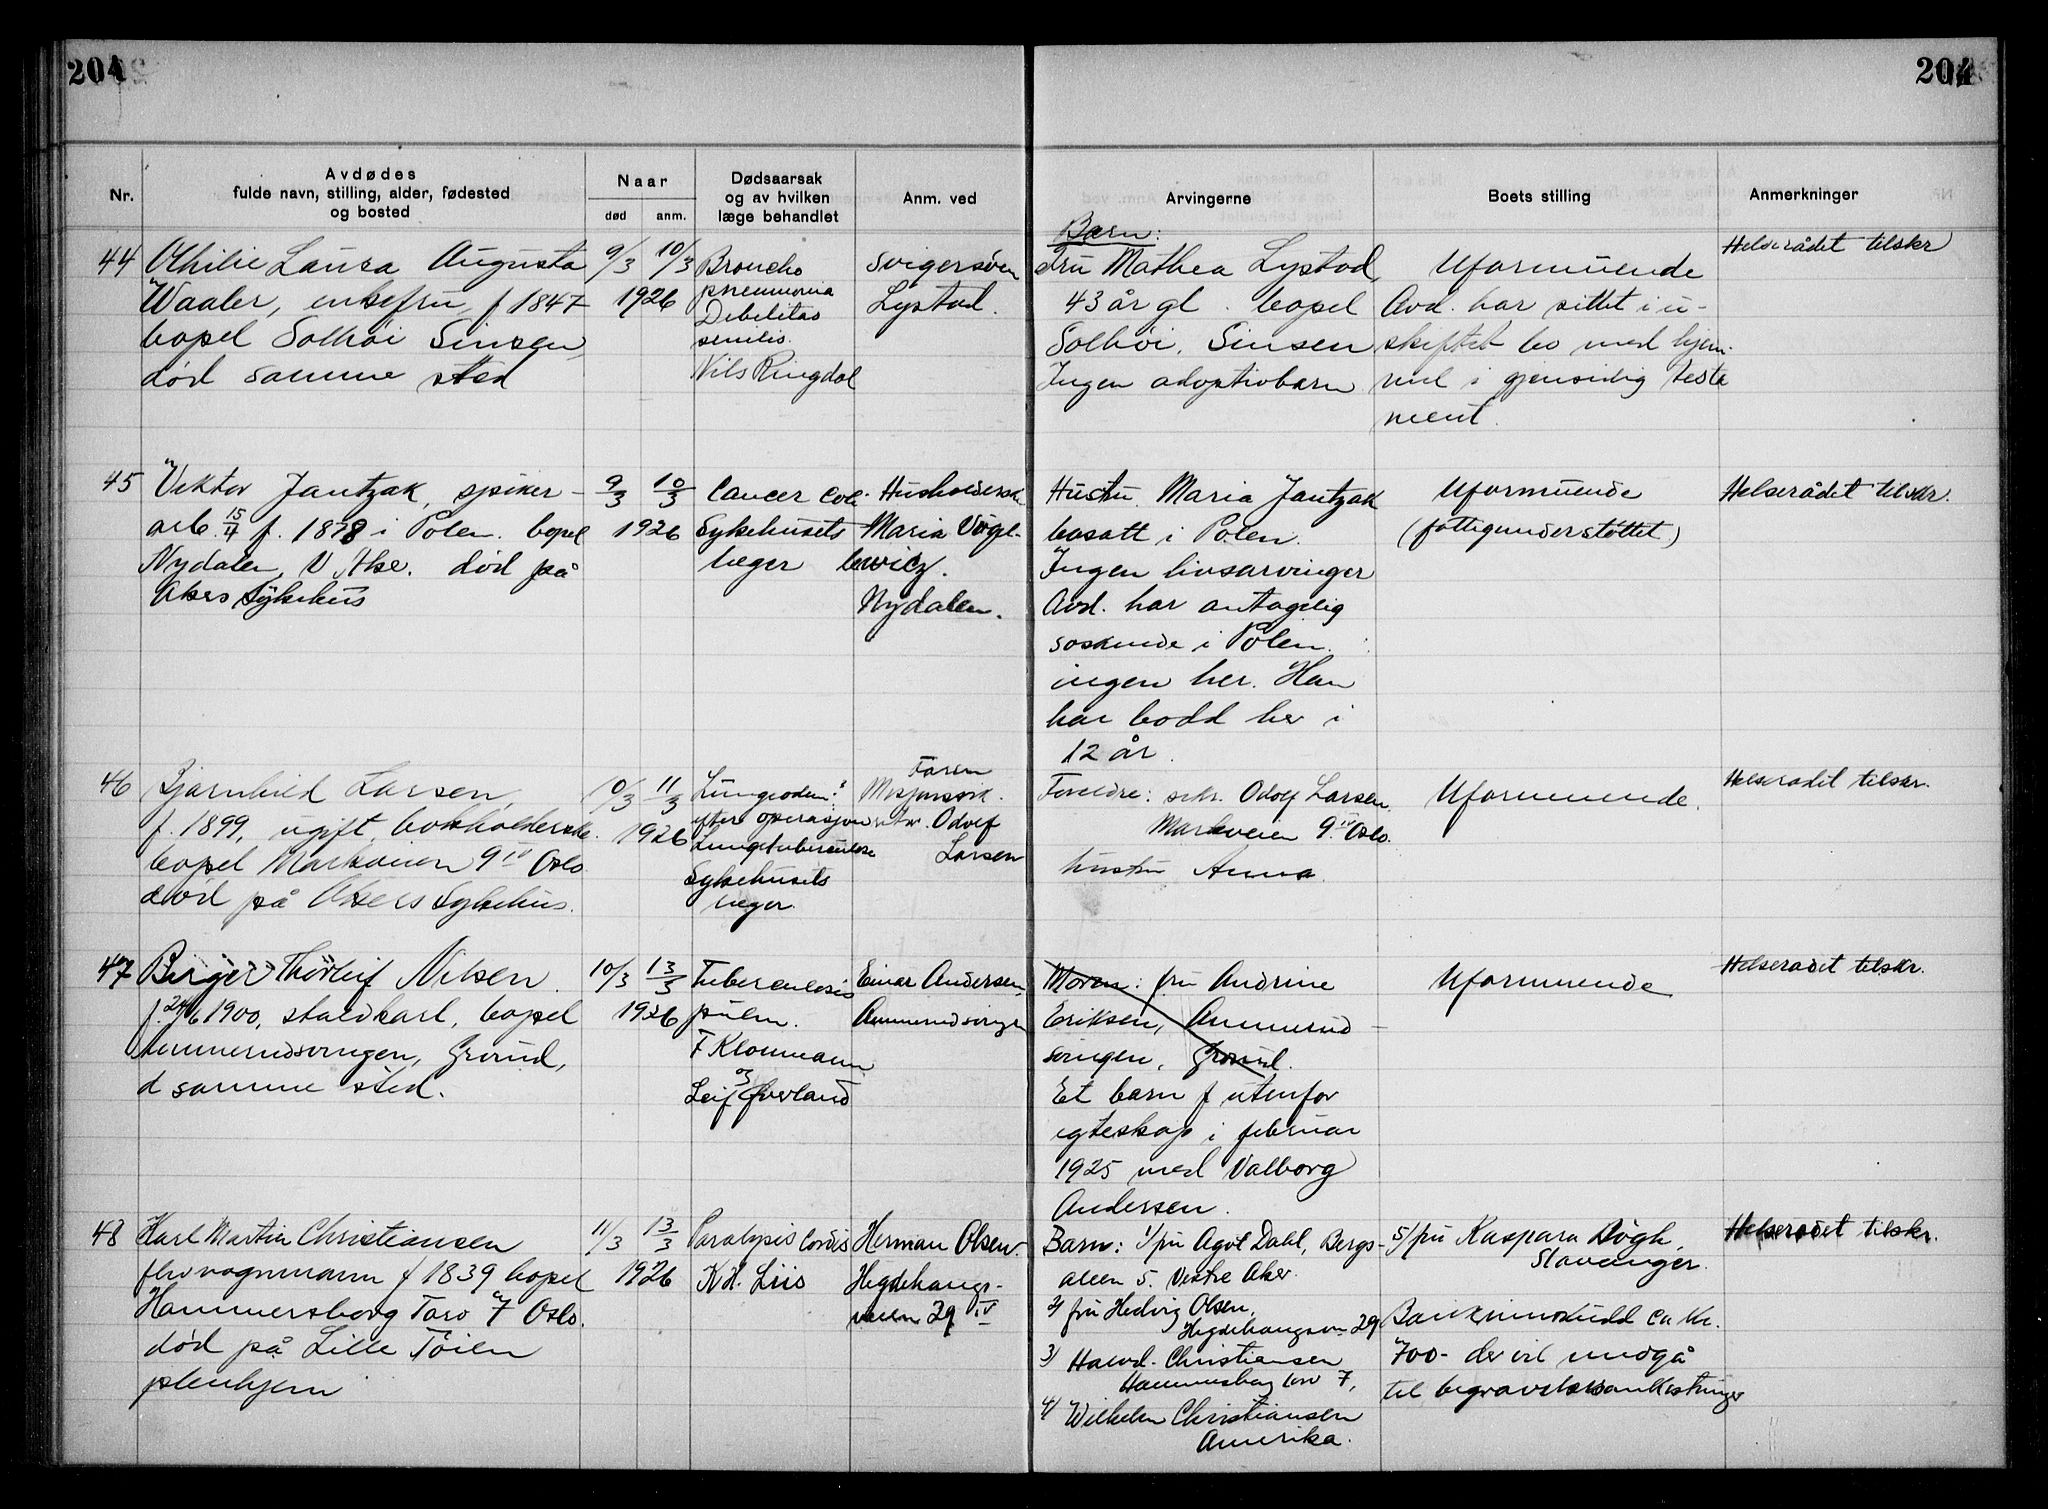 204
204
Nr.
Avdødes
fulde navn, stilling, alder, fødested
og bosted
Naar
død
anm.
Dødsaarsak
og av hvilken
læge behandlet
Anm. ved
Arvingerne
Boets stilling
Anmerkninger
44
Othilie Laura Augusta
Waaler, enkefru, f 1847
bopel Solhøi Sinsen,
død samme sted
9/3 10/3
1926
Broncho
pneumonia
Debilitas
senilis.
Nils Ringdal
Svigersøn
Lystad.
Barn:
Fru Mathea Lystad,
43 år gl. bopel
Solhøi, Sinsen
Ingen adoptivbarn
Uformuende
Avd. har sittet i u-
skiftet bo med hjem-
mel i gjensidig testa
ment.
Helserådet tilskr
45
Viktor Jantzak, spiker-
arb. 15/4 f. 1878 i Polen. bopel
Nydalen, V Ake. død på
Akers Sykehus
9/3 10/3
1926
Cancer coli
Sykehusets
læger
Husholdersk
Maria
Nydalen.
Hustru Maria Jantzak
bosatt i Polen.
Ingen livsarvinger
Avd. har antagelig
søskende i Polen.
ingen her. Han
har bodd her i
12 år.
Uformuende
(fattigunderstøttet)
Helserådet tilskr.
46
Bjarnhild Larsen,
f. 1899, ugift, bokholderske.
bopel Markveien 9 IV Oslo
død på Akers Sykehus.
10/3 11/3
1926
Lungeødem?
efter operasjon
Lungetuberculose
Sykehusets
læger.
Faren
Misjonssek-
retær Odolf
Larsen
Foreldre: sekr. Odolf Larsen,
Markveien 9 IV Oslo.
hustru Anna.
Uformuende.
Helserådet tilskr.
47
Birger Thorleif Nilsen.
f. 24/6 1900, staldkarl, bopel
Ammerudsvingen, Grorud,
d samme sted.
10/3 13/3
1926
Tuberculosis
pulm.
F Kloumann
og
Leif Øverland
Einar Andersen,
Ammerudsvingen
Moren: fru Andrine
Eriksen, Ammerud-
svingen, Grorud.
Et barn f utenfor
egteskap i februar
1925 med Valborg
Andersen.
Uformuende
Helserådet tilskr.
48
Karl Martin Christiansen
fhv vognmann f 1839 bopel
Hammersborg Torv 7 Oslo.
død på Lille Tøien
pleiehjem
11/3 13/3
1926
Paralysis cordis
Kr. Liis
Herman Olsen.
Hegdehaugs-
veien 29 IV
Barn: 1/ fru Agot Dahl, Bergs-
aleen 5. Vestre Aker.
2/ fru Hedvig Olsen,
Hegdehaugsv 29
3/ Haavd. Christiansen
Hammersborg torv 7,
4/ Wilhelm Christiansen
Amerika.
5/ fru Kaspara Døgh,
Stavanger.
Bankinnskudd ca kr.
700- der vil medgå
til begravelsesomkostninger
Helserådet tilskr.